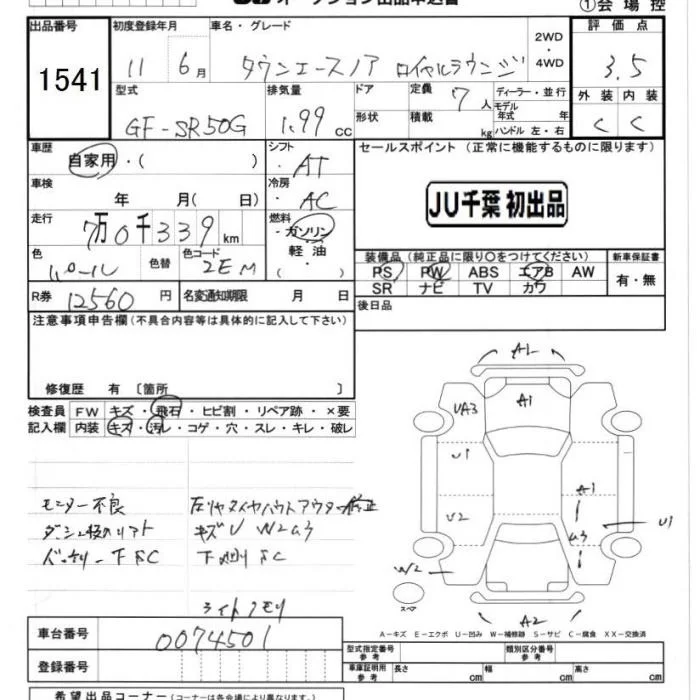 ①会場控
出品番号 初度登録年月 車名・グレード 2WD ・ 4WD 評価点
1541 11年 6月 タウンエースノア ロイヤルラウンジ 3.5
型式 排気量 ドア 定員 7人 ディーラー・並行 外装 内装
GF-SR50G 1.99cc 形状 積載 kg モデル年式 年 ハンドル 左・右 C C
車歴 自家用・( ) シフト ・AT セールスポイント (正常に機能するものに限ります)
車検 年 月( 日) 冷房 ・AC JU千葉 初出品
走行 7万0千339km 燃料 ・ガソリン 軽油
色 パール 色替 色コード 2EM
装備品 (純正品に限り○をつけてください) 新車保証書
PS PW ABS エアB AW 有・無
SR ナビ TV カワ
R券 12560円 名変通知期限 月 日 後日品
注意事項申告欄 (不具合内容等は具体的に記入して下さい)
修復歴 有 〔箇所 〕
検査員 FW キズ・飛石・ヒビ割・リペア跡・×要
記入欄 内装 キズ・汚レ・コゲ・穴・スレ・キレ・破レ
A1
UA3 A1
U1
A1
U2 U1
W2
モニター不良
キズU
下廻りSC
ライトクモリ
スペア
A2
A-キズ E-エクボ U-凹み W-補修跡 S-サビ C-腐食 XX-交換済
車台番号 0074501
登録番号
型式指定番号 参考 類別区分番号 参考
車庫証明用 参考 長さ cm 幅 cm 高さ cm
希望出品コーナー (コーナーは各会場により異なります。)